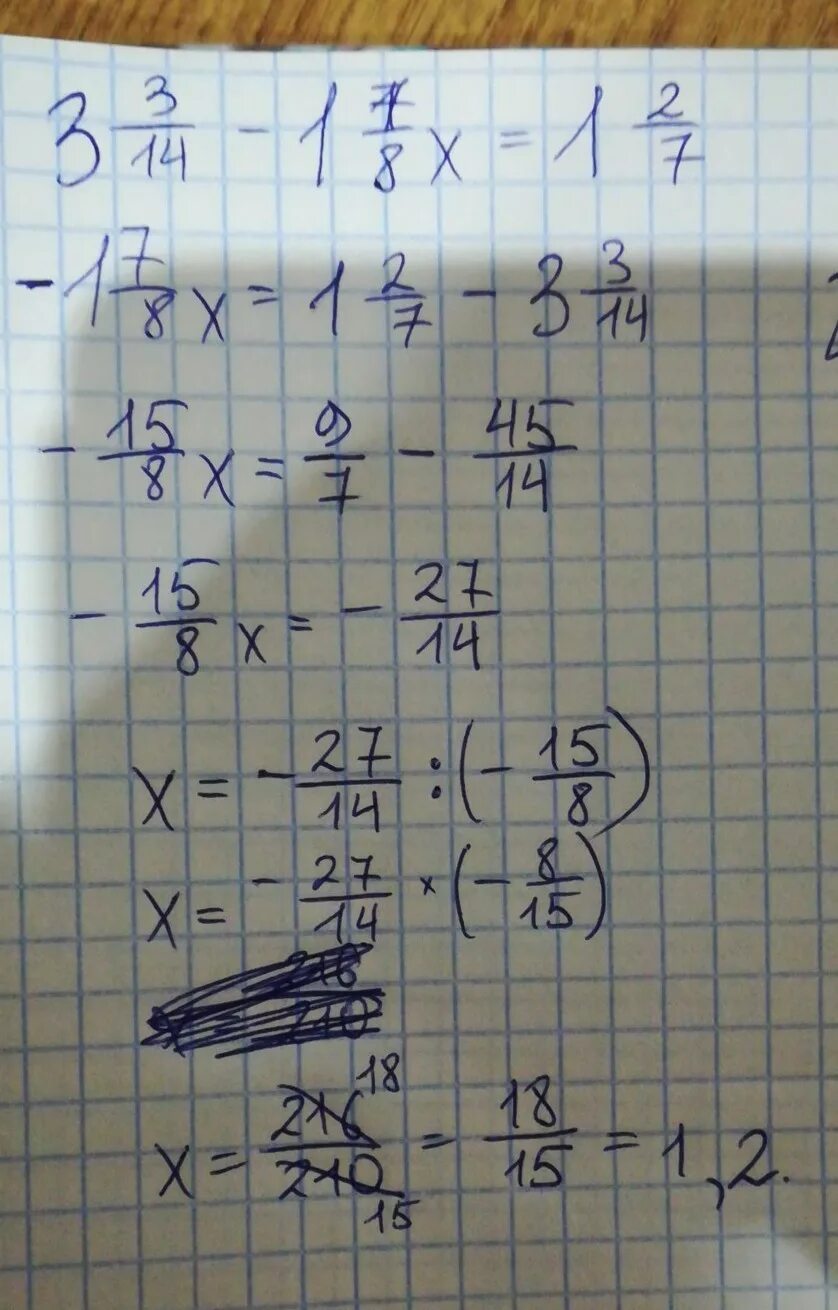 3 3/14 - 1 7/8 x = 1 2/7
-1 7/8 x = 1 2/7 - 3 3/14
- 15/8 x = 9/7 - 45/14
- 15/8 x = - 27/14
x = - 27/14 : (- 15/8)
x = - 27/14 × (- 8/15)
x = 216/210 18 15 = 18/15 = 1,2.